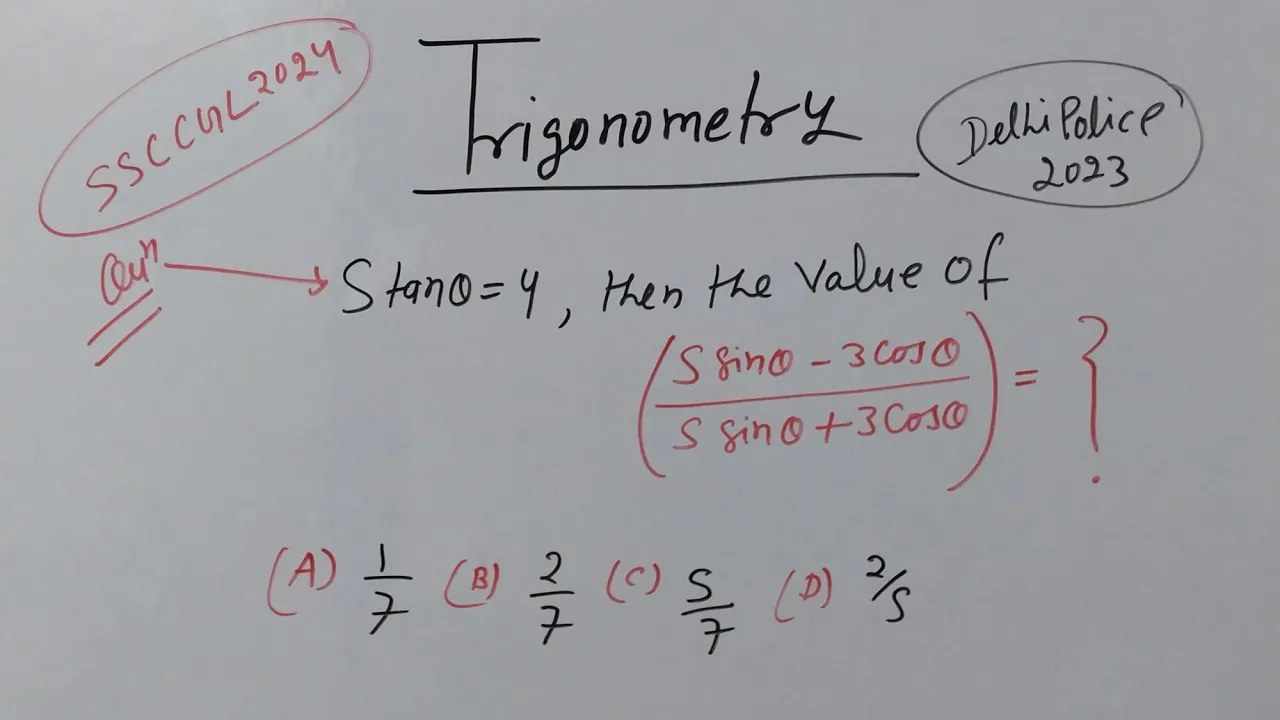 SSC CGL 2024
Trigonometry
Delhi Police
2023
Quⁿ → 5 tanθ = 4, then the value of
(5 sinθ - 3 cosθ / 5 sinθ + 3 cosθ) = ?
(A) 1/7 (B) 2/7 (C) 5/7 (D) 2/5